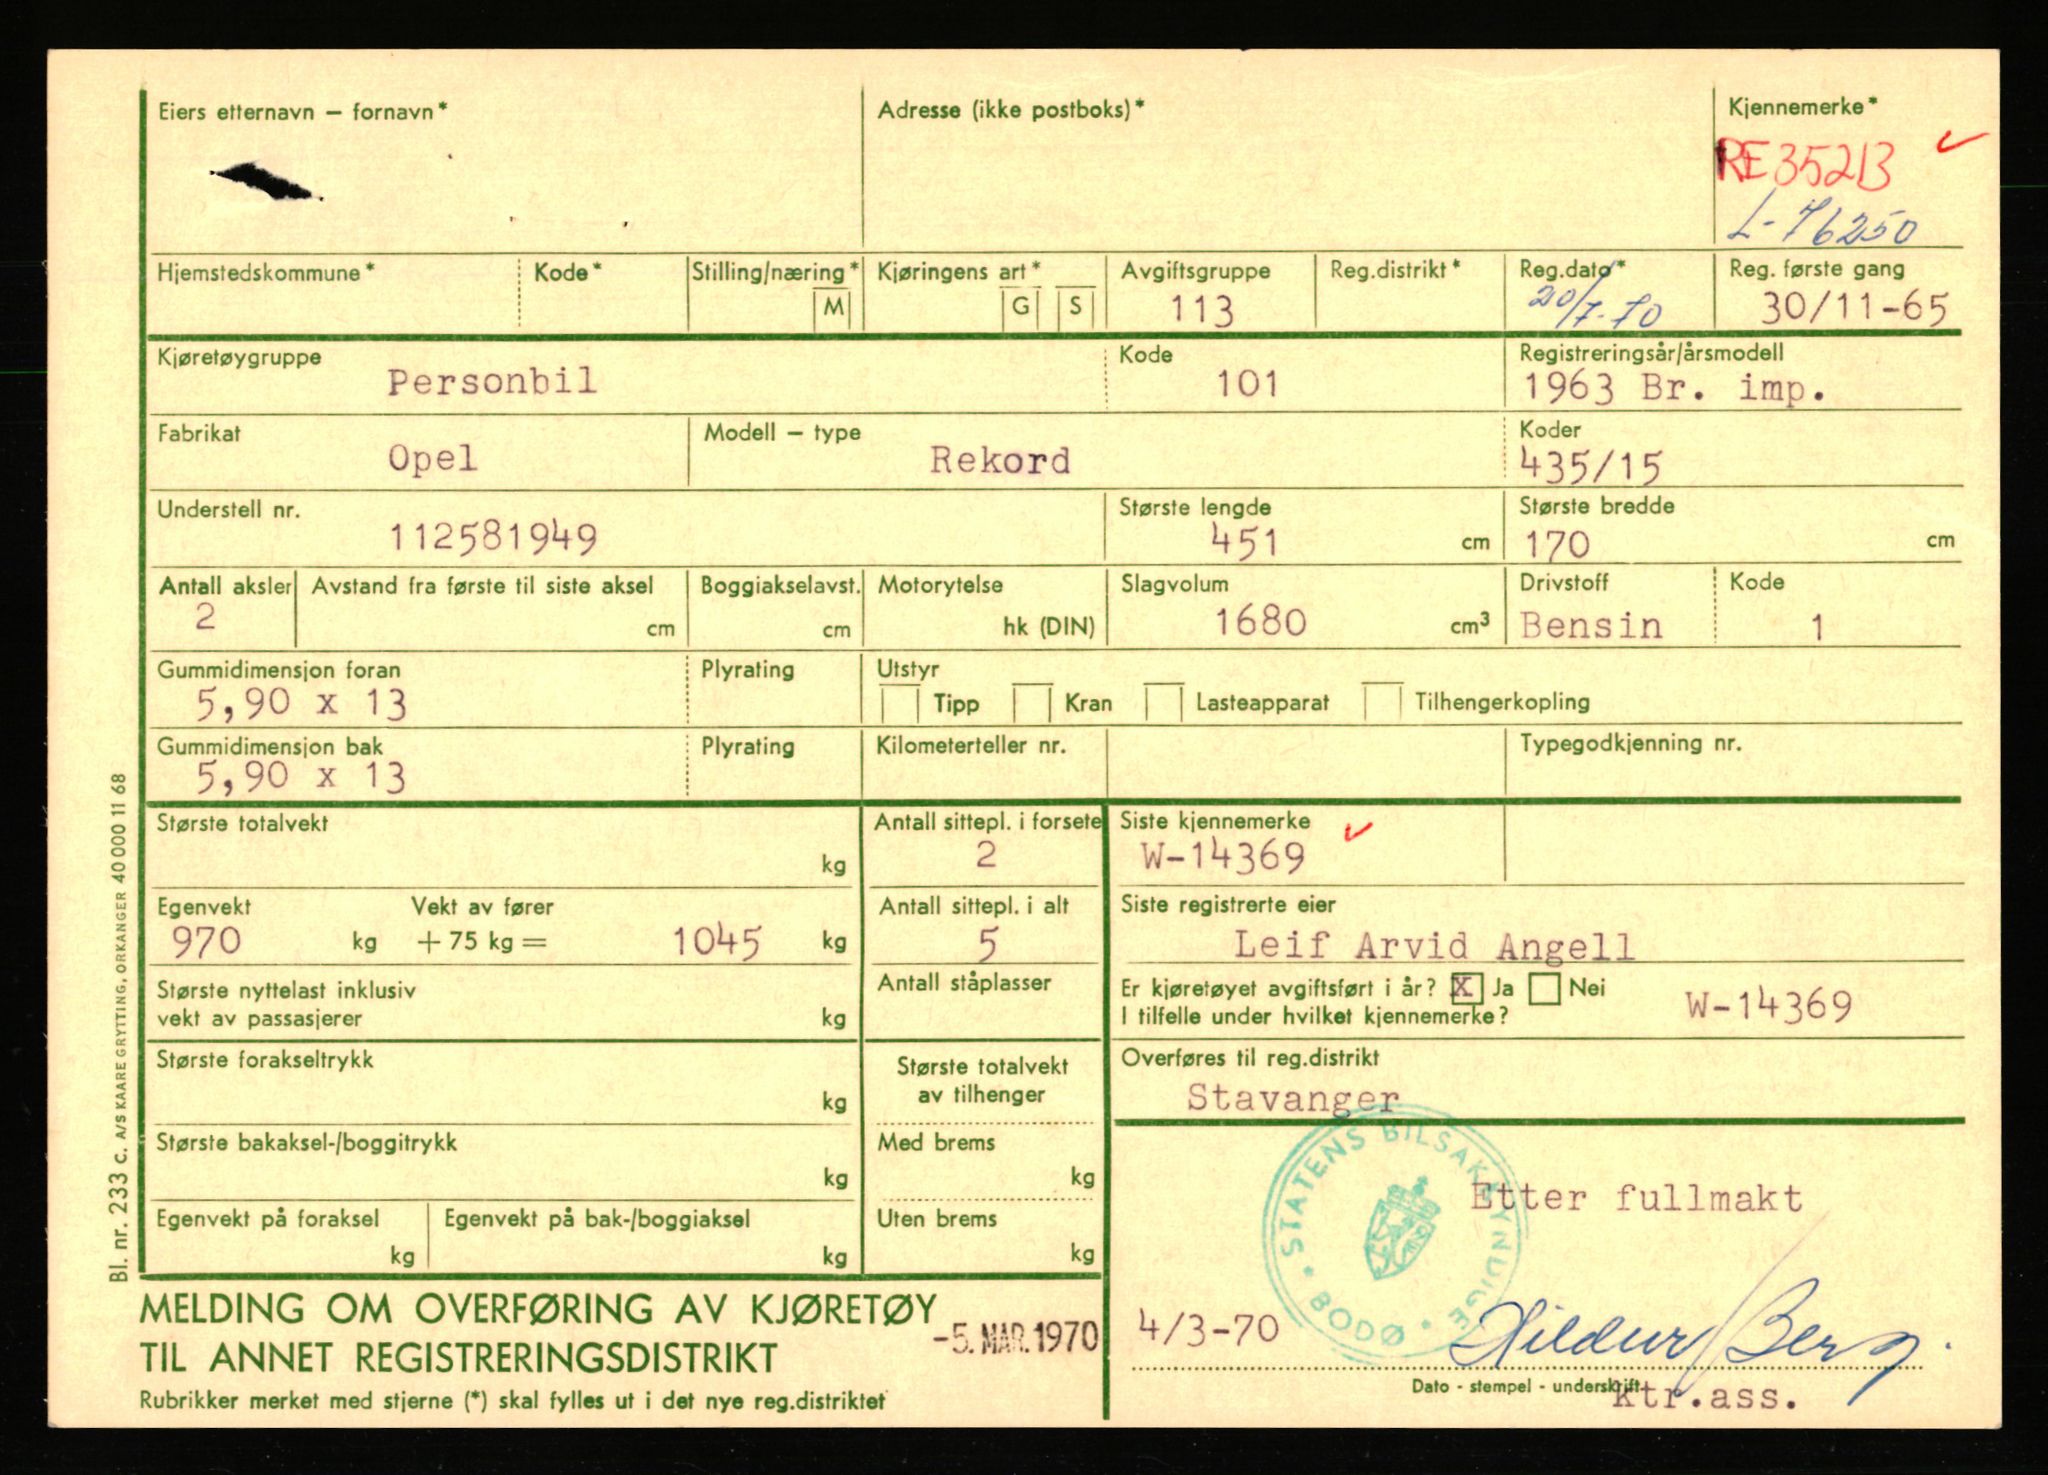 Eiers etternavn – fornavn*
Adresse (ikke postboks)*
Kjennemerke*
RE35213
L-76250
Hjemstedskommune* Kode* Stilling/næring* M Kjøringens art* G S Avgiftsgruppe 113 Reg.distrikt* Reg.dato* 20/7-70 Reg. første gang 30/11-65
Kjøretøygruppe Personbil Kode 101 Registreringsår/årsmodell 1963 Br. imp.
Fabrikat Opel Modell – type Rekord Koder 435/15
Understell nr. 112581949 Største lengde 451 cm Største bredde 170 cm
Antall aksler 2 Avstand fra første til siste aksel cm Boggiakselavst. cm Motorytelse hk (DIN) Slagvolum 1680 cm³ Drivstoff Bensin Kode 1
Gummidimensjon foran 5,90 x 13 Plyrating Utstyr Tipp Kran Lasteapparat Tilhengerkopling
Gummidimensjon bak 5,90 x 13 Plyrating Kilometerteller nr. Typegodkjenning nr.
Største totalvekt kg Antall sittepl. i forsete 2 Siste kjennemerke W-14369
Egenvekt 970 kg Vekt av fører + 75 kg = 1045 kg Antall sittepl. i alt 5 Siste registrerte eier Leif Arvid Angell
Største nyttelast inklusiv
vekt av passasjerer kg
Antall ståplasser
Er kjøretøyet avgiftsført i år? X Ja Nei
I tilfelle under hvilket kjennemerke? W-14369
Største forakseltrykk kg
Største totalvekt
av tilhenger
Overføres til reg.distrikt
Stavanger
Største bakaksel-/boggitrykk kg Med brems kg
Egenvekt på foraksel kg Egenvekt på bak-/boggiaksel kg Uten brems kg
STATENS BILSAKKYNDIGE • BODØ •
Etter fullmakt
MELDING OM OVERFØRING AV KJØRETØY
TIL ANNET REGISTRERINGSDISTRIKT
Rubrikker merket med stjerne (*) skal fylles ut i det nye reg.distriktet
-5. MAR. 1970
4/3-70
Hildur Berg
Dato - stempel - underskrift
ktr.ass.
Bl. nr. 233 c. A/S KAARE GRYTTING, ORKANGER 40 000 11 68